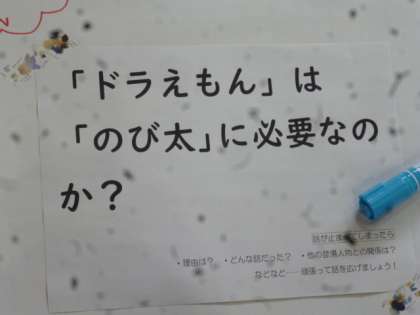 「ドラえもん」は
「のび太」に必要なの
か？
話が止まってしまったら
・理由は？ ・どんな話だった？ ・他の登場人物との関係は？
などなど…… 頑張って話を広げましょう！